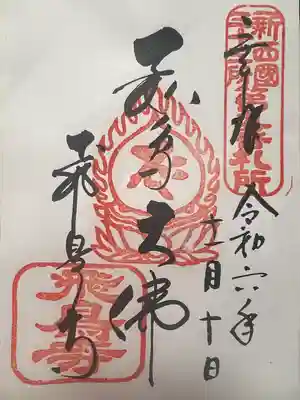 奉拝
令和六年
十一月十日
飛鳥大佛
飛鳥寺
新西國
札所
飛鳥寺